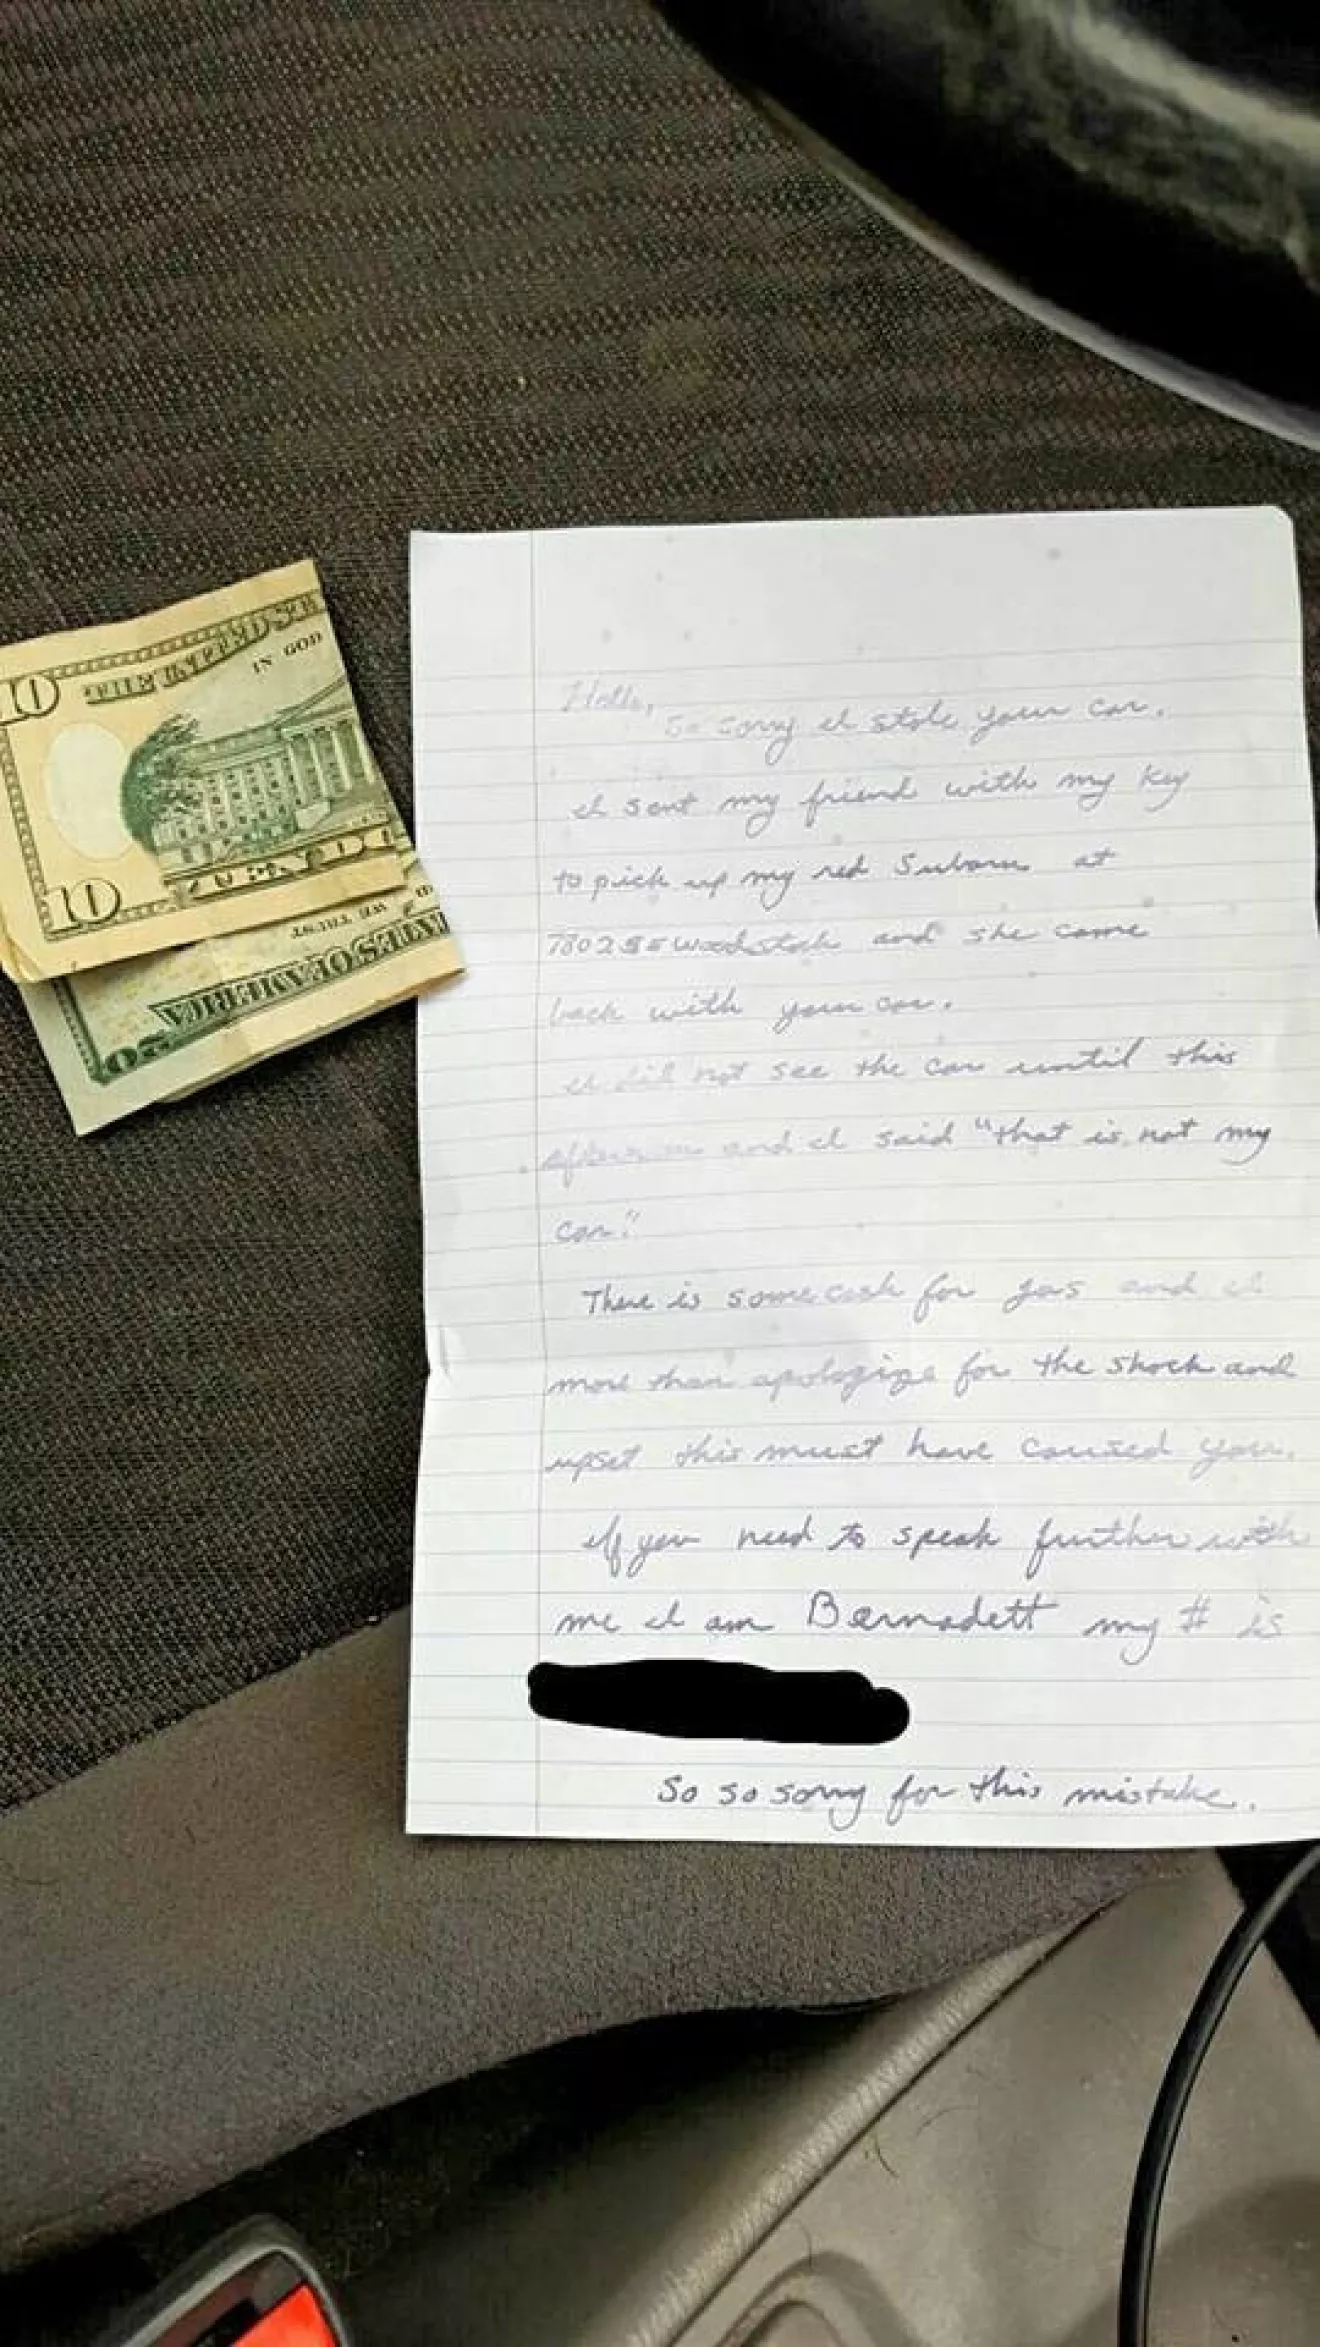 10 THE UNITED ST
IN GOD
10
WE TRUST
TATES OF AMERICA
20
Hello,
So sorry I stole your car.
I sent my friend with my key
to pick up my red Subaru at
7802 SE Woodstock and she came
back with your car.
I did not see the car until this
afternoon and I said "that is not my
car."
There is some cash for gas and I
more than apologize for the shock and
upset this must have caused you.
If you need to speak further with
me I am Bernadett my # is
So so sorry for this mistake.